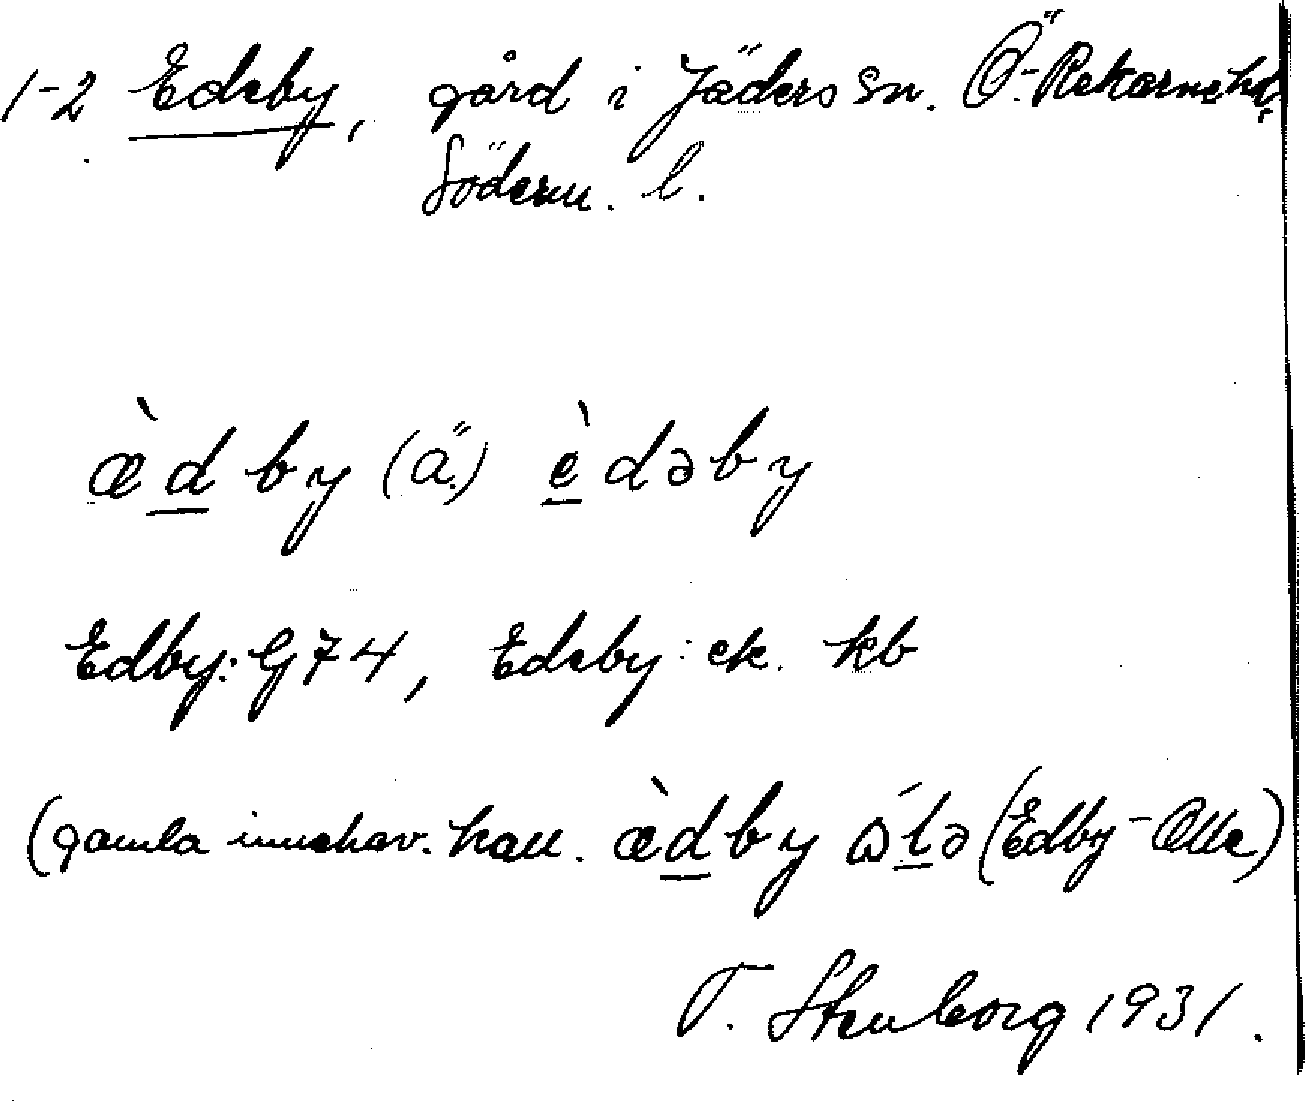 1-2 Edeby, gård i Jäders sn. Ö.-Rekarne hd,
Söderm. l.
æ̀d̲by (ä.) è̲dəby
Edby: G74, Edeby: ek. kb
(gamla innehav. kall. æ̀d̲by ɷ́l̲ə (Edby-Olle)
T. Stenborg 1931.